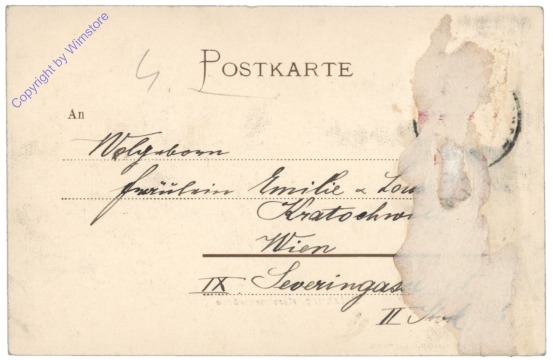 Copyright by Wimstore
4.
POSTKARTE
An
Wolgeborn
Fräulein Emilie &
Wien
IX. Severingasse
II